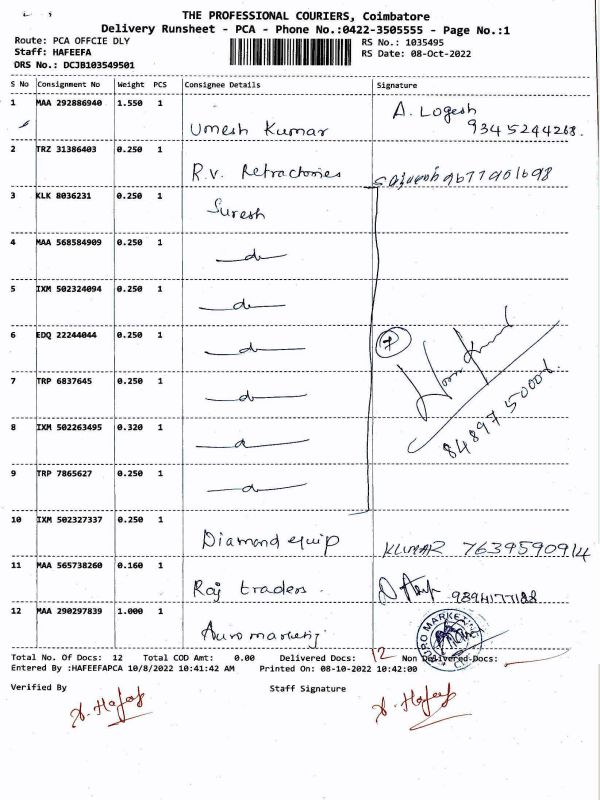 THE PROFESSIONAL COURIERS, Coimbatore
Delivery Runsheet - PCA - Phone No.:0422-3505555 - Page No.:1
Route: PCA OFFCIE DLY RS No.: 1035495
Staff: HAFEEFA RS Date: 08-Oct-2022
DRS No.: DCJB103549501
S No Consignment No Weight PCS Consignee Details Signature
1 MAA 292886940 1.550 1 Umesh Kumar A. Logesh 9345244268.
2 TRZ 31386403 0.250 1 R.V. Refractories 9677901698
3 KLK 8036231 0.250 1 Suresh
4 MAA 568584909 0.250 1 — do —
5 IXM 502324094 0.250 1 — do —
6 EDQ 22244044 0.250 1 — do — 7
7 TRP 6837645 0.250 1 — do —
8 IXM 502263495 0.320 1 — do — 84897 50001
9 TRP 7865627 0.250 1 — do —
10 IXM 502327337 0.250 1 Diamond equip KUMAR 7639590914
11 MAA 565738260 0.160 1 Raj traders
12 MAA 290297839 1.000 1 Auro marketing
Total No. Of Docs: 12 Total COD Amt: 0.00 Delivered Docs: 12 Non Delivered Docs:
Entered By :HAFEEFAPCA 10/8/2022 10:41:42 AM Printed On: 08-10-2022 10:42:00
Verified By Staff Signature